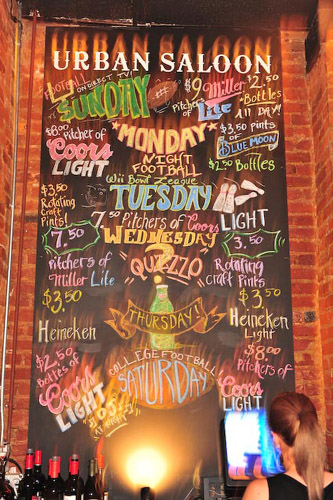 URBAN SALOON
FOOTBALL
ON DIRECT TV!
SUNDAY
$9 Miller
Pitcher of Lite
$2.50
Bottles
All DAY!!
$8.00
Pitcher of
Coors
LIGHT
MONDAY
NIGHT
FOOTBALL
$3.50 Pints
OF
BLUE MOON
$2.50 Bottles
Wii Bowl League
TUESDAY
$3.50
Rotating
Craft
Pints!
7.50 Pitchers of Coors
LIGHT
WEDNESDAY
QUIZZO
7.50
Pitchers of
Miller Lite
3.50
Rotating
Craft Pints
$3.50
Heineken
THURSDAY!
$3.50
Heineken
Light
COLLEGE FOOTBALL
SATURDAY
$2.50
Bottles of
Coors
LIGHT
$8.00
Pitchers of
Coors
LIGHT